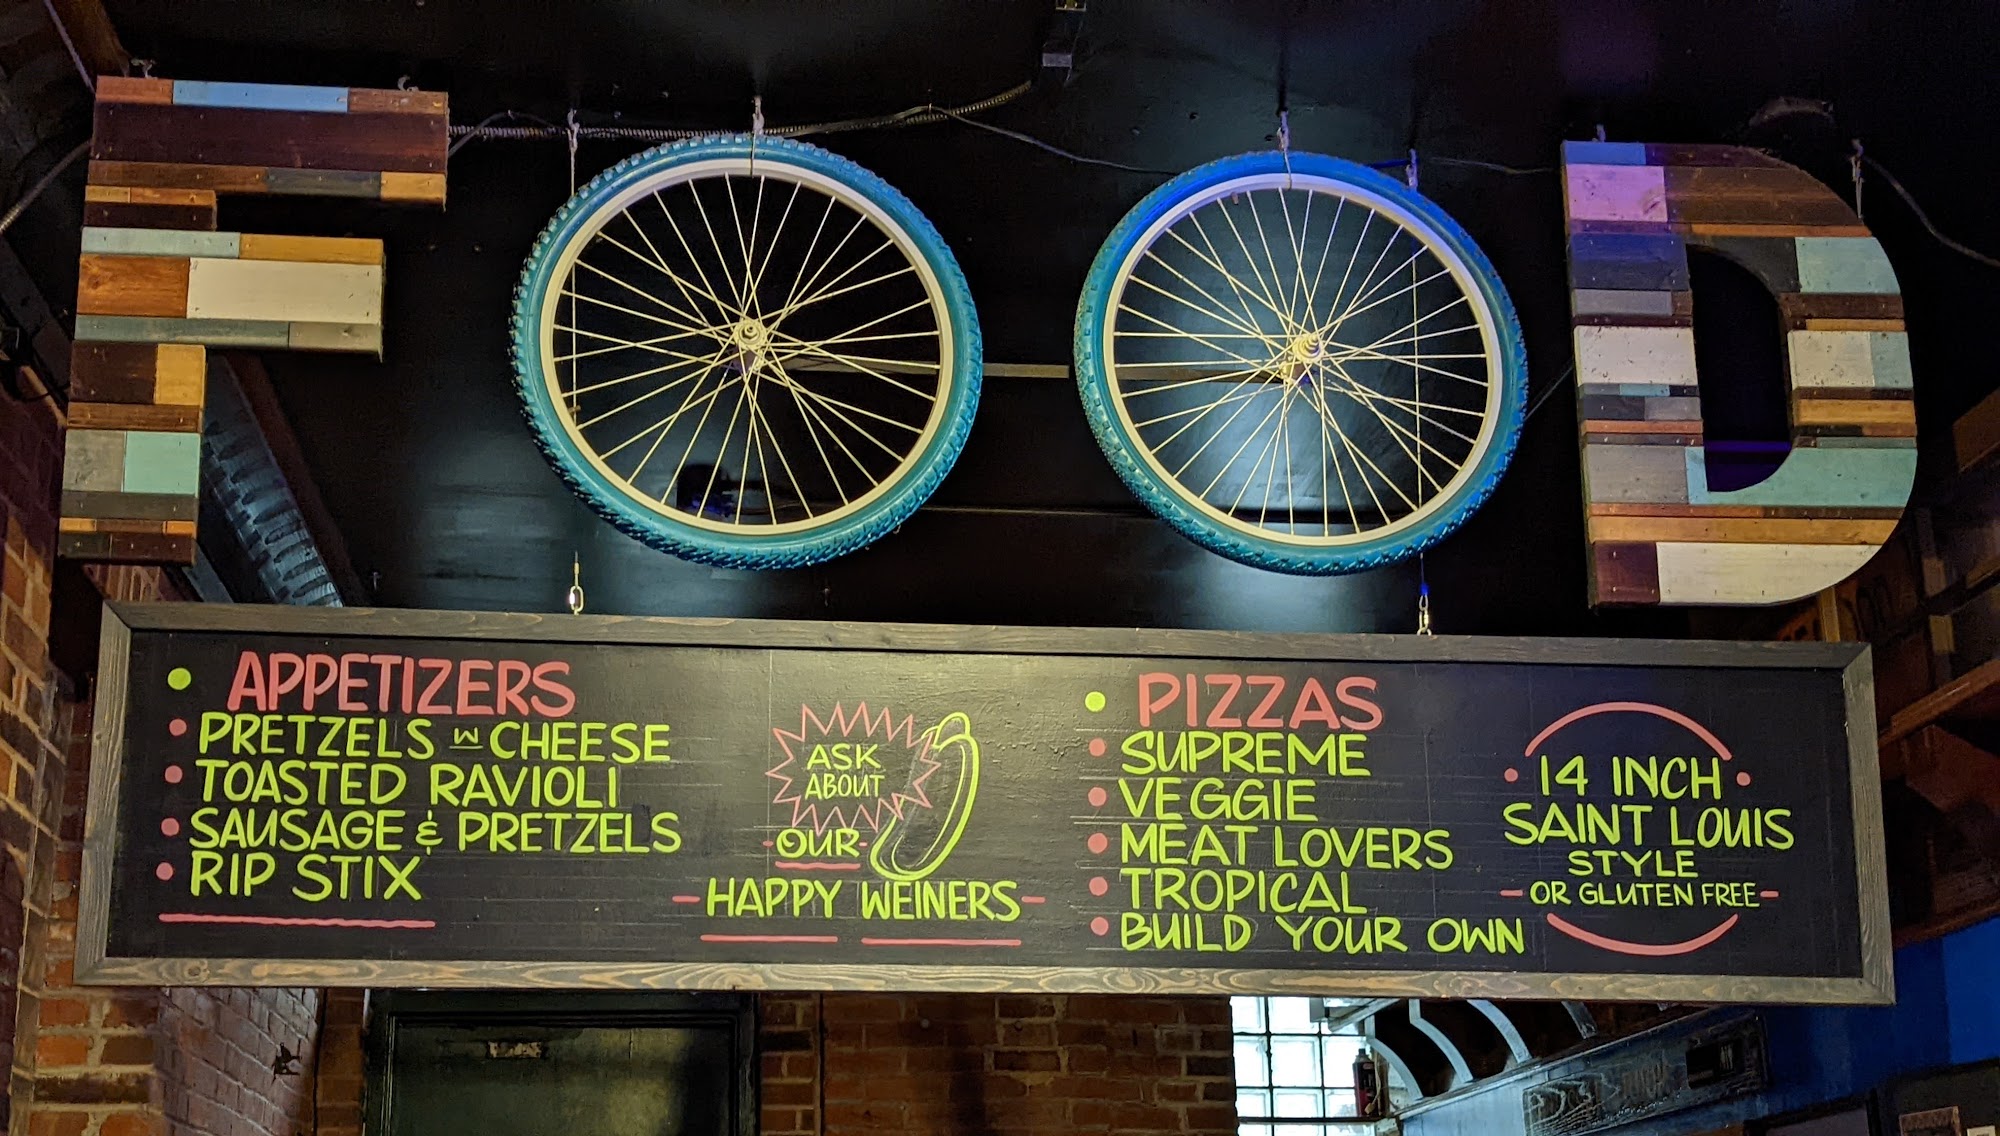 FOOD
APPETIZERS
PRETZELS W CHEESE
TOASTED RAVIOLI
SAUSAGE & PRETZELS
RIP STIX
ASK
ABOUT
OUR
HAPPY WEINERS
PIZZAS
SUPREME
VEGGIE
MEAT LOVERS
TROPICAL
BUILD YOUR OWN
14 INCH
SAINT LOUIS
STYLE
OR GLUTEN FREE